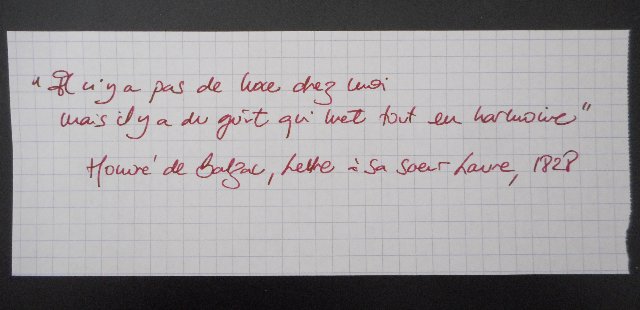 "Il n'y a pas de luxe chez moi
mais il y a du goût qui met tout en harmonie"
Honoré de Balzac, Lettre à sa soeur Laure, 1828